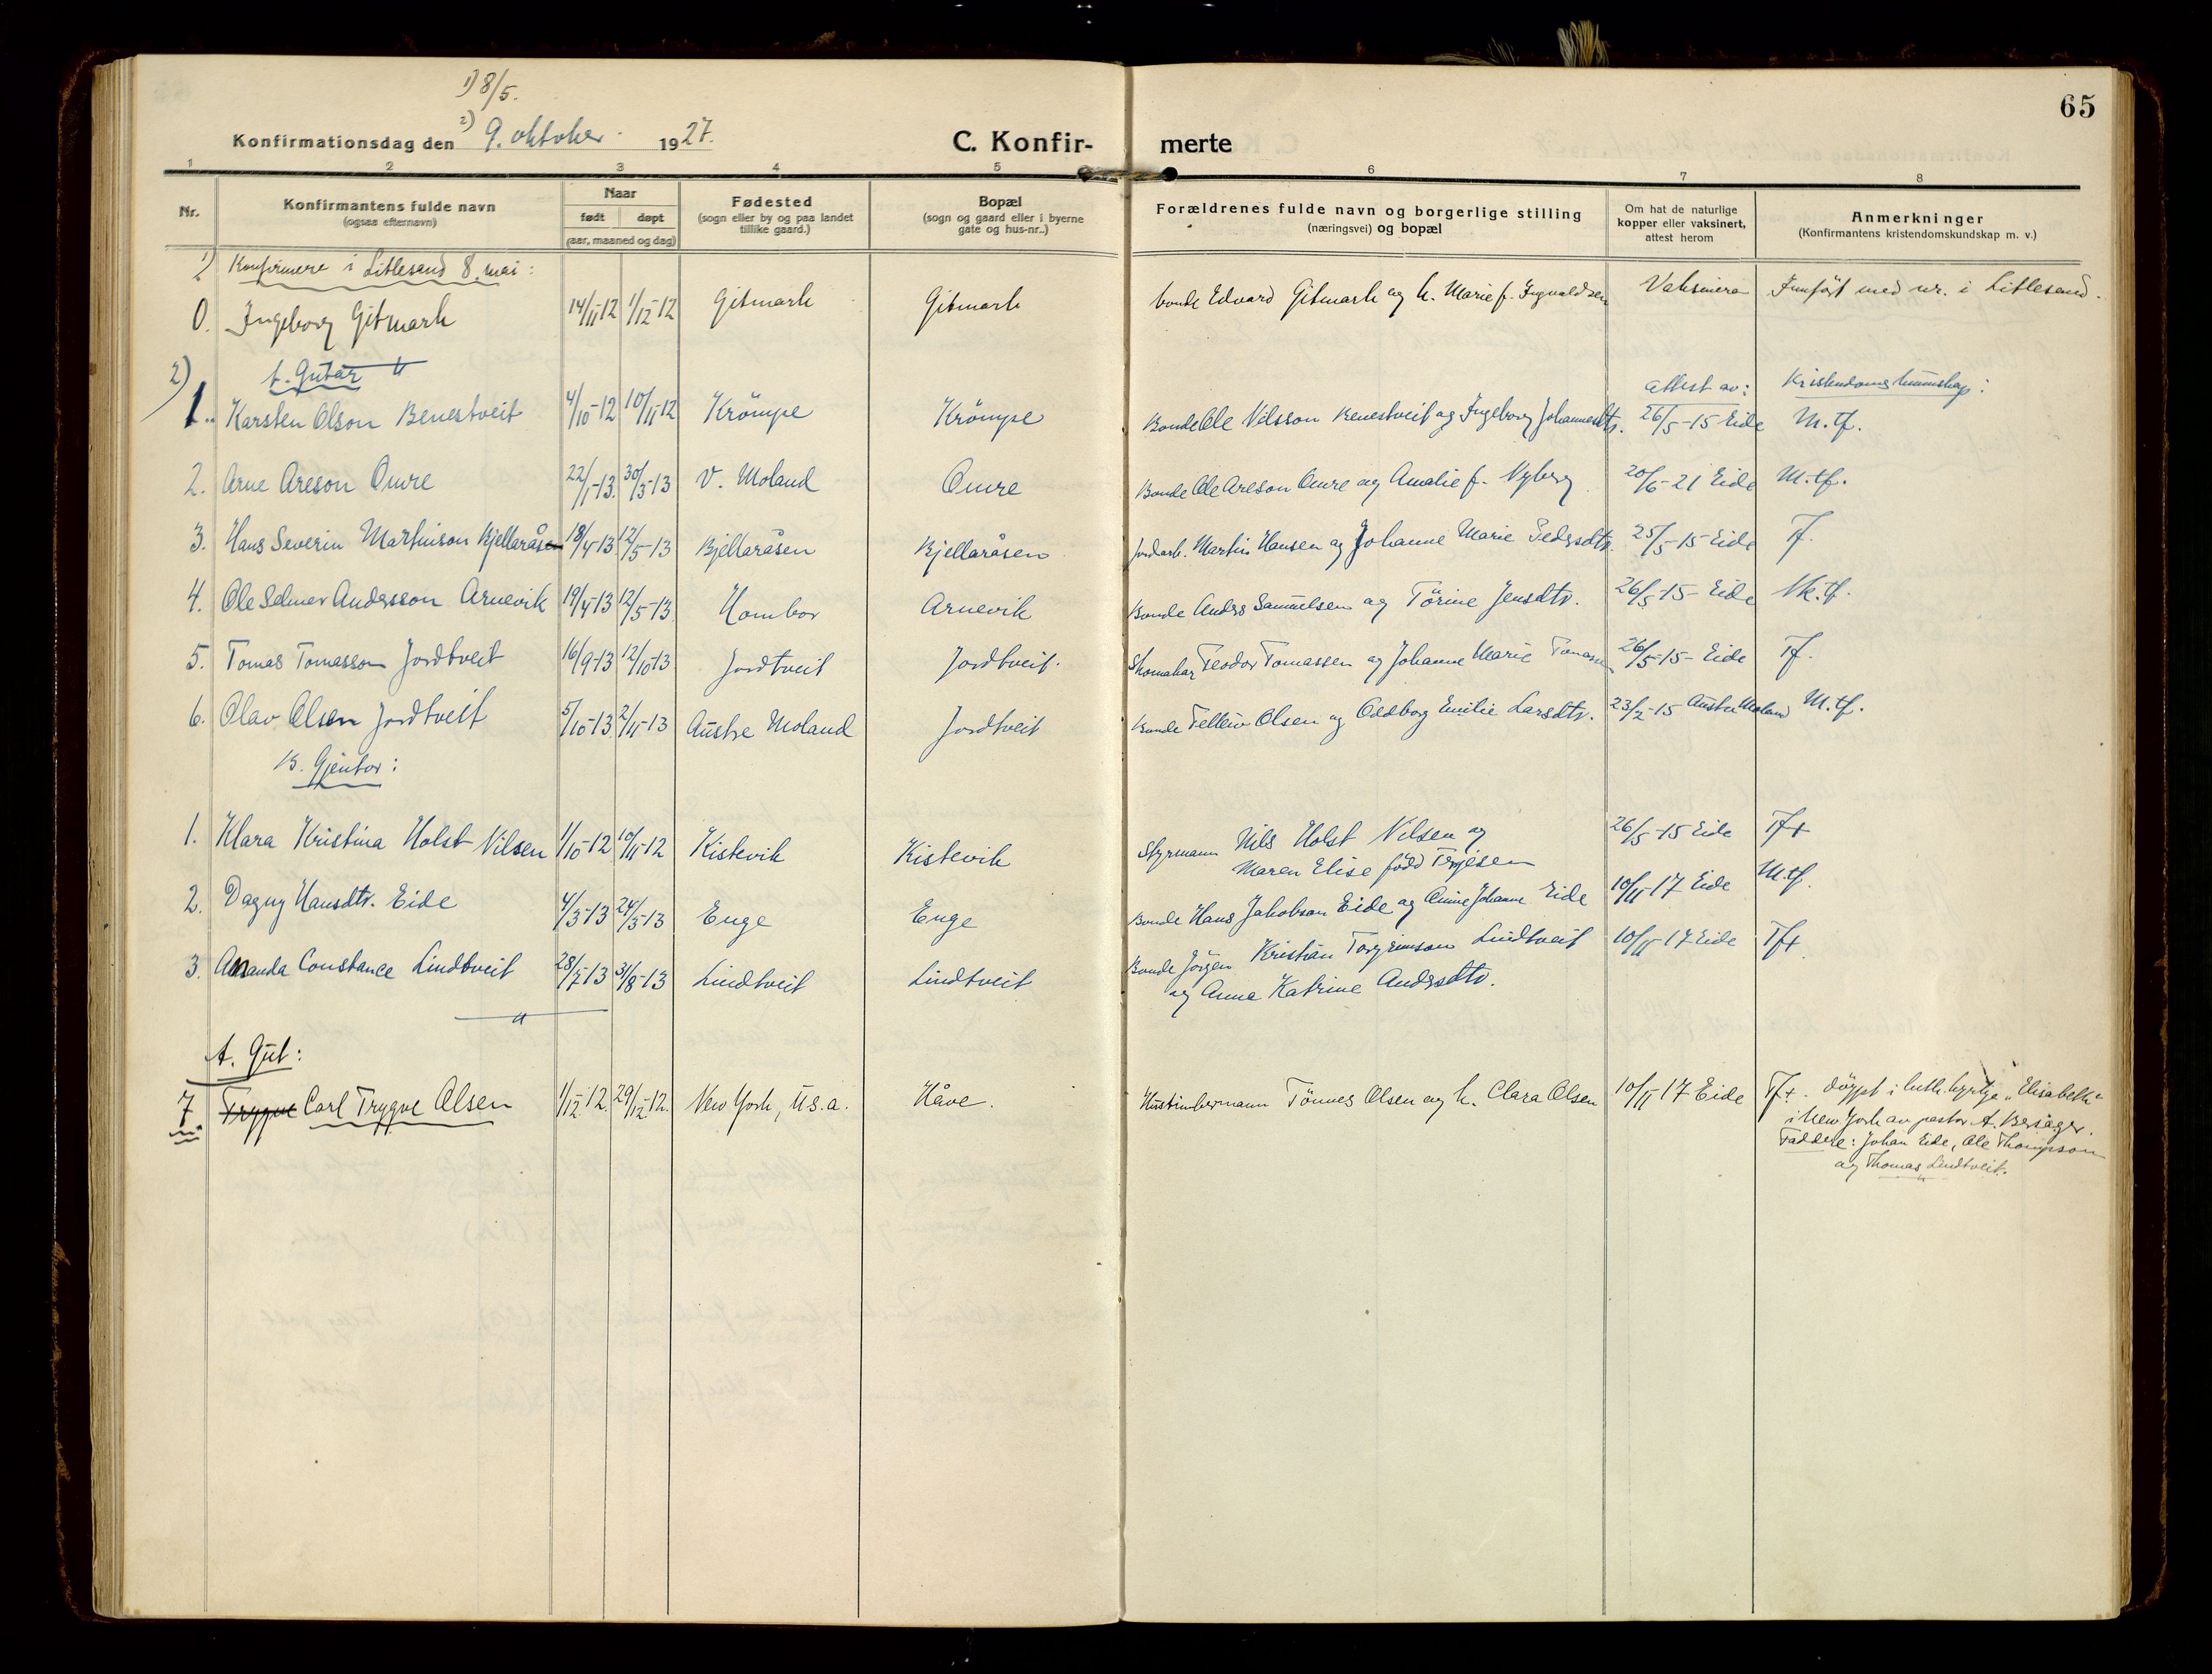 65
1) 8/5.
Konfirmationsdag den 2) 9. oktober 1927.
C. Konfirmerte
1 2 3 4 5 6 7 8
Nr.
Konfirmantens fulde navn
(ogsaa efternavn)
Naar
født døpt
(aar, maaned og dag)
Fødested
(sogn eller by og paa landet
tillike gaard.)
Bopæl
(sogn og gaard eller i byerne
gate og hus-nr..)
Forældrenes fulde navn og borgerlige stilling
(næringsvei) og bopæl
Om hat de naturlige
kopper eller vaksinert,
attest herom
Anmerkninger
(Konfirmantens kristendomskundskap m. v.)
1) Konfirmere i Litlesand 8. mai:
0. Ingeborg Gitmark 14/11-12 1/12-12 Gitmark Gitmark bonde Edvard Gitmark og h. Marie f. Ingvaldsen Vaksinera Innført med nr. i Litlesand.
2) A. Gutar
attest av: Kristendomskunnskap:
1. Karsten Olson Benestveit 4/10-12 10/11-12 Krömpe Krömpe Bonde Ole Nilsson Benestveit og Ingeborg Johannesdtr. 26/5-15 Eide M.tf.
2. Arne Areson Omre 22/1-13 30/3-13 V. Moland Omre Bonde Ole Areson Omre og Amalie f. Nyberg 20/6-21 Eide M.tf.
3. Hans Severin Martinson Kjellaråsen 18/4-13 12/5-13 Kjellaråsen Kjellaråsen Jordarb. Martin Hansen og Johanne Marie Pedersdtr. 25/5-15 Eide Tf.
4. Ole Selmer Andersson Arnevik 19/4-13 12/5-13 Hombor Arnevik Bonde Anders Samuelsen og Törine Jensdtr. 26/5-15- Eide Nk.tf.
5. Tomas Tomasson Jordtveit 16/9-13 12/10-13 Jordtveit Jordtveit. Skomakar Teodor Tomassen og Johanne Marie Tomassen 26/5-15- Eide Tf.
6. Olav Olsen Jordtveit 5/10-13 2/11-13 Austre Moland Jordtveit Bonde Tellev Olsen og Oddborg Emilie Larsdtr. 23/2-15 Austre Moland M.tf.
B. Gjentor:
1. Klara Kristina Holst Nilsen 1/10-12 10/11-12 Kistevik Kistevik Styrmann Nils Holst Nilsen og 26/5-15 Eide Tf+
Maren Elise född Terjesen
2. Dagny Hansdtr. Eide 4/3-13 24/3-13 Enge Enge Bonde Hans Jakobson Eide og Anne Johanne Eide 10/11-17 Eide M.tf.
3. Amanda Constance Lindtveit 28/7-13 31/8-13 Lindtveit Lindtveit Bonde Jörgen Kristian Torgrimson Lindtveit 10/11-17 Eide Tf+
og Anna Katrine Andersdtr.
A. Gut:
7. Trygve Carl Trygve Olsen 1/12-12. 29/12-12. New York, U.S.a. Håve. Hustimbermann Tönnes Olsen og h. Clara Olsen 10/11-17 Eide Tf+. döypt i luth. kyrkje "Elisabeth"
i New York av pastor A. Bersåger.
Faddere: Johan Eide, Ole Thompson
og Thomas Lindtveit.